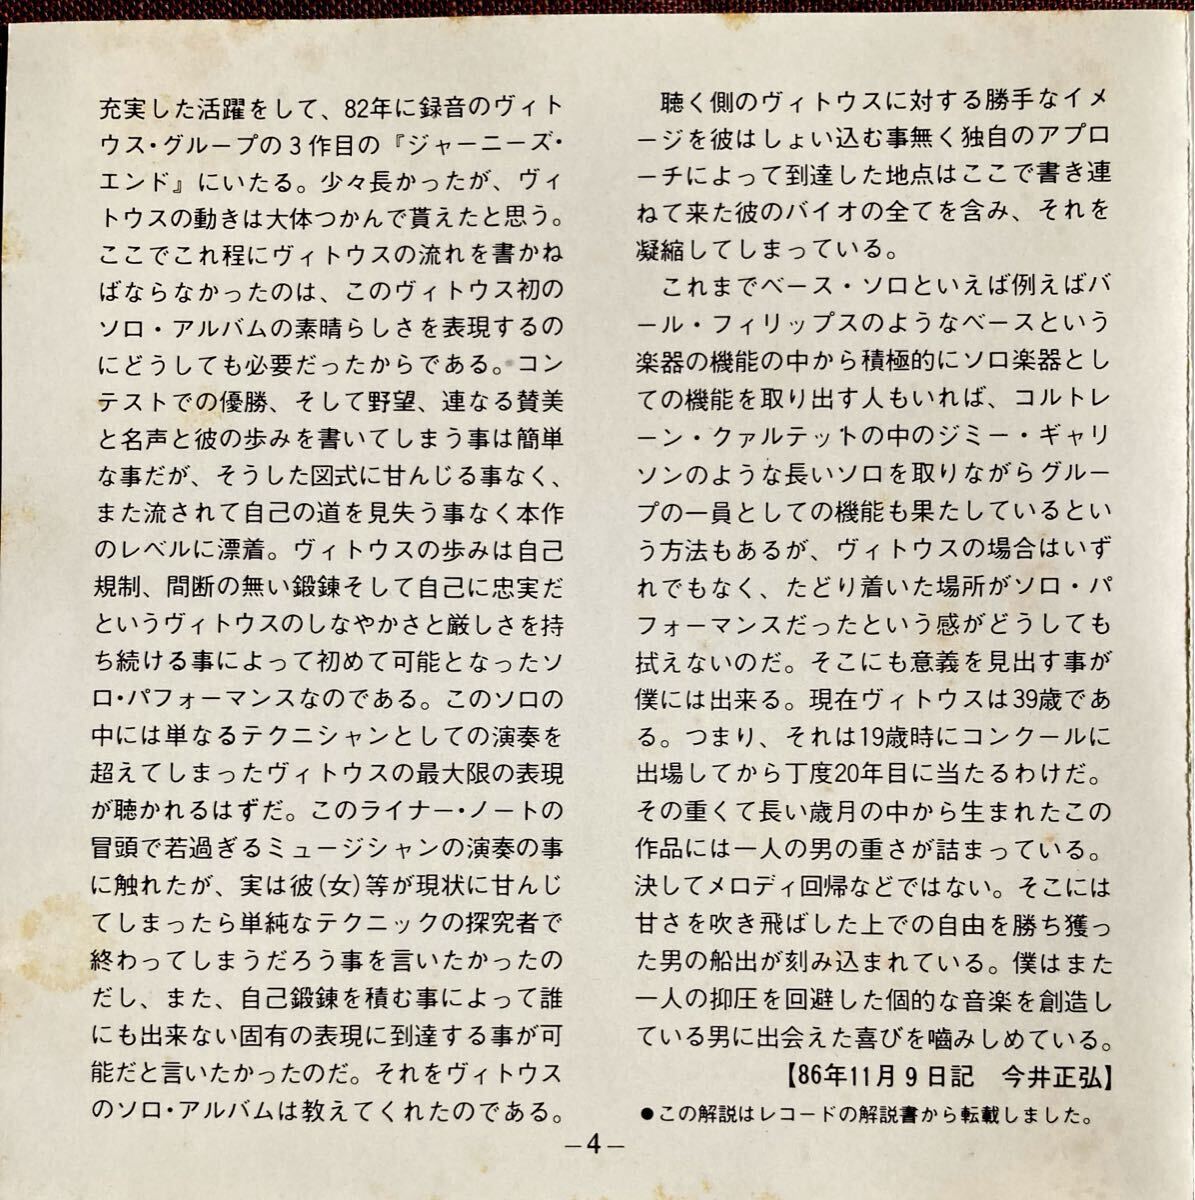 充実した活躍をして、82年に録音のヴィト
ウス・グループの3作目の『ジャーニーズ・
エンド』にいたる。少々長かったが、ヴィ
トウスの動きは大体つかんで貰えたと思う。
ここでこれ程にヴィトウスの流れを書かね
ばならなかったのは、このヴィトウス初の
ソロ・アルバムの素晴らしさを表現するの
にどうしても必要だったからである。コン
テストでの優勝、そして野望、連なる賛美
と名声と彼の歩みを書いてしまう事は簡単
な事だが、そうした図式に甘んじる事なく、
また流されて自己の道を見失う事なく本作
のレベルに漂着。ヴィトウスの歩みは自己
規制、間断の無い鍛錬そして自己に忠実だ
というヴィトウスのしなやかさと厳しさを持
ち続ける事によって初めて可能となったソ
ロ・パフォーマンスなのである。このソロの
中には単なるテクニシャンとしての演奏を
超えてしまったヴィトウスの最大限の表現
が聴かれるはずだ。このライナー・ノートの
冒頭で若過ぎるミュージシャンの演奏の事
に触れたが、実は彼(女)等が現状に甘んじ
てしまったら単純なテクニックの探究者で
終わってしまうだろう事を言いたかったの
だし、また、自己鍛錬を積む事によって誰
にも出来ない固有の表現に到達する事が可
能だと言いたかったのだ。それをヴィトウス
のソロ・アルバムは教えてくれたのである。
聴く側のヴィトウスに対する勝手なイメ
ージを彼はしょい込む事無く独自のアプロ
ーチによって到達した地点はここで書き連
ねて来た彼のバイオの全てを含み、それを
凝縮してしまっている。
これまでベース・ソロといえば例えばバ
ール・フィリップスのようなベースという
楽器の機能の中から積極的にソロ楽器とし
ての機能を取り出す人もいれば、コルトレ
ーン・クァルテットの中のジミー・ギャリ
ソンのような長いソロを取りながらグルー
プの一員としての機能も果たしているとい
う方法もあるが、ヴィトウスの場合はいず
れでもなく、たどり着いた場所がソロ・パ
フォーマンスだったという感がどうしても
拭えないのだ。そこにも意義を見出す事が
僕には出来る。現在ヴィトウスは39歳であ
る。つまり、それは19歳時にコンクールに
出場してから丁度20年目に当たるわけだ。
その重くて長い歳月の中から生まれたこの
作品には一人の男の重さが詰まっている。
決してメロディ回帰などではない。そこには
甘さを吹き飛ばした上での自由を勝ち獲っ
た男の船出が刻み込まれている。僕はまた
一人の抑圧を回避した個的な音楽を創造し
ている男に出会えた喜びを嚙みしめている。
【86年11月9日記　今井正弘】
●この解説はレコードの解説書から転載しました。
—4—